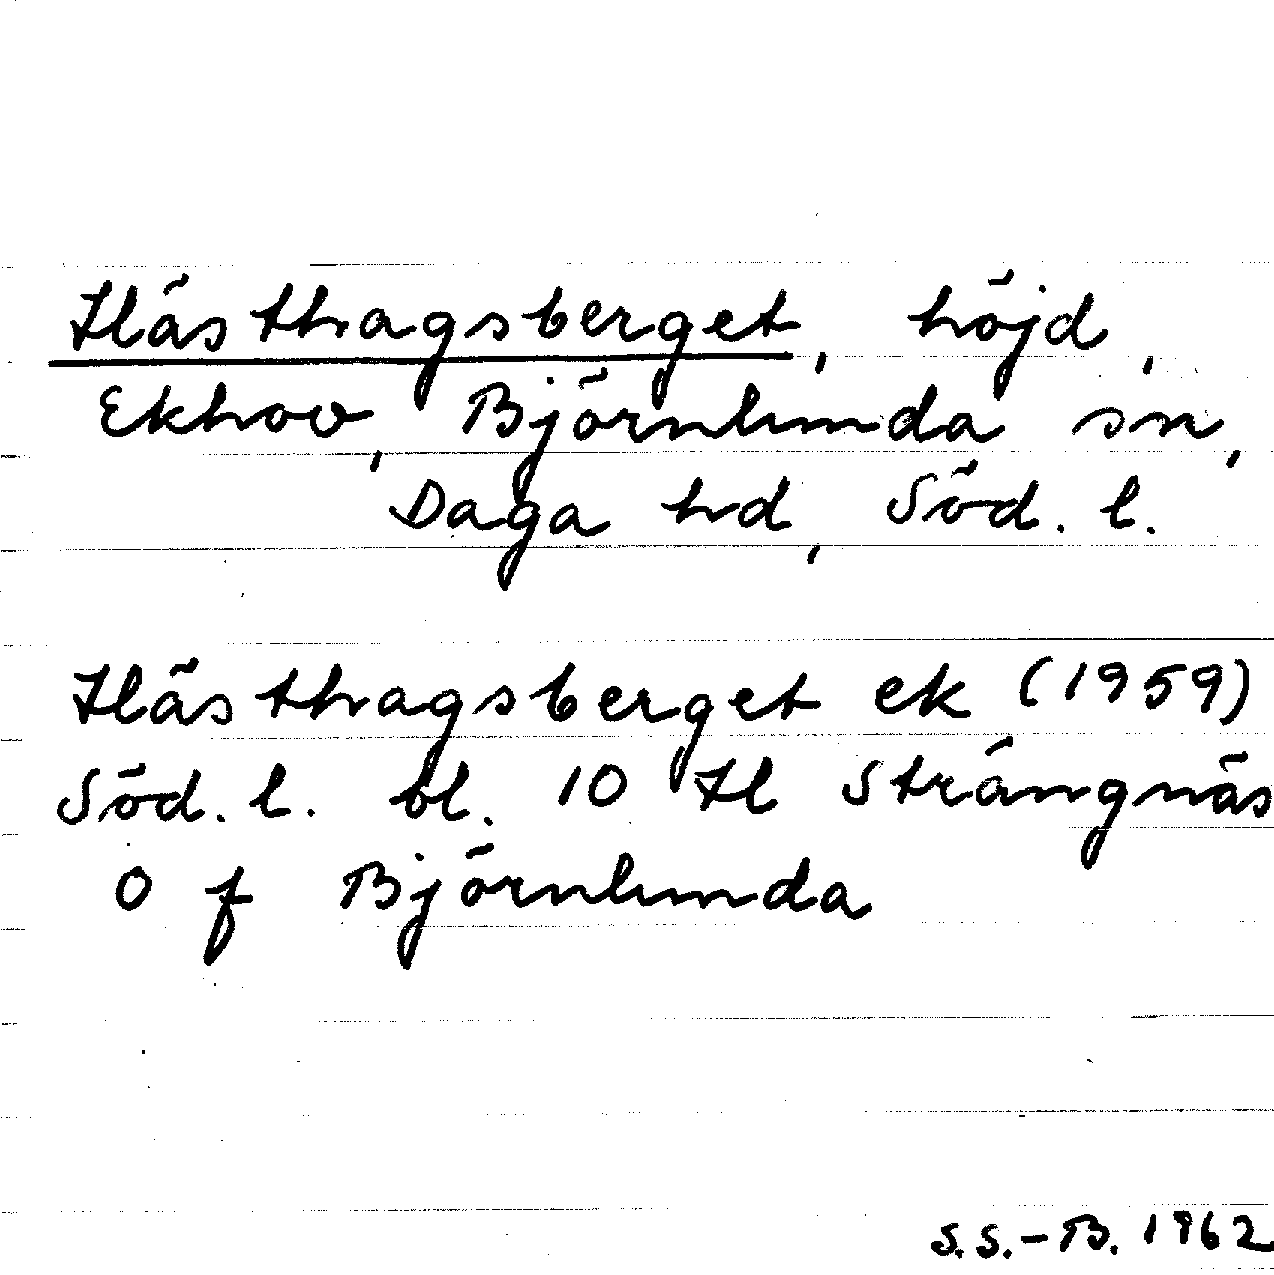 Hästhagsberget, höjd,
Ekhov, Björnlunda sn,
Daga hd, Söd. l.
Hästhagsberget ek (1959)
Söd. l. bl. 10 H Strängnäs
O f Björnlunda
S.S.-B. 1962